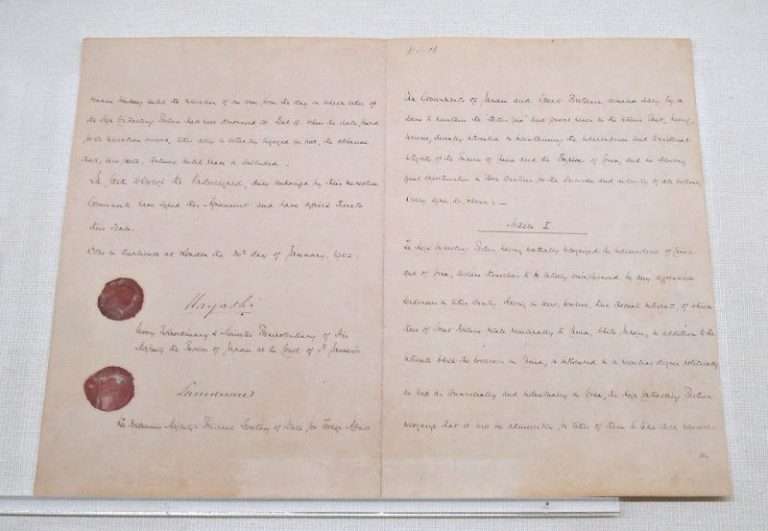 remain binding until the expiration of one year from the day on which either of
the High Contracting Parties shall have denounced it. But if, when the date fixed
for its expiration arrives, either ally is actually engaged in war, the alliance
shall, ipso facto, continue until peace is concluded.—
In faith whereof the Undersigned, duly authorized by their respective
Governments have signed this Agreement and have affixed thereto
their Seals.
Done in duplicate at London the 30th day of January, 1902.
Hayashi
Envoy Extraordinary & Minister Plenipotentiary of His
Majesty the Emperor of Japan at the Court of St James's.
Lansdowne
His Britannic Majesty's Principal Secretary of State for Foreign Affairs
The Governments of Japan and Great Britain, actuated solely by a
desire to maintain the "status quo" and general peace in the extreme East, being,
moreover, specially interested in maintaining the independence and territorial
integrity of the Empire of China and the Empire of Corea, and in securing
equal opportunities in those countries for the commerce and industry of all nations,
hereby agree as follows:—
Article I.
The High Contracting Parties having mutually recognized the independence of China
and of Corea, declare themselves to be entirely uninfluenced by any aggressive
tendencies in either country. Having in view, however, their special interests, of which
those of Great Britain relate principally to China, while Japan, in addition to the
interests which she possesses in China, is interested in a peculiar degree politically
as well as commercially and industrially in Corea, the High Contracting Parties
recognize that it will be admissible for either of them to take such measures